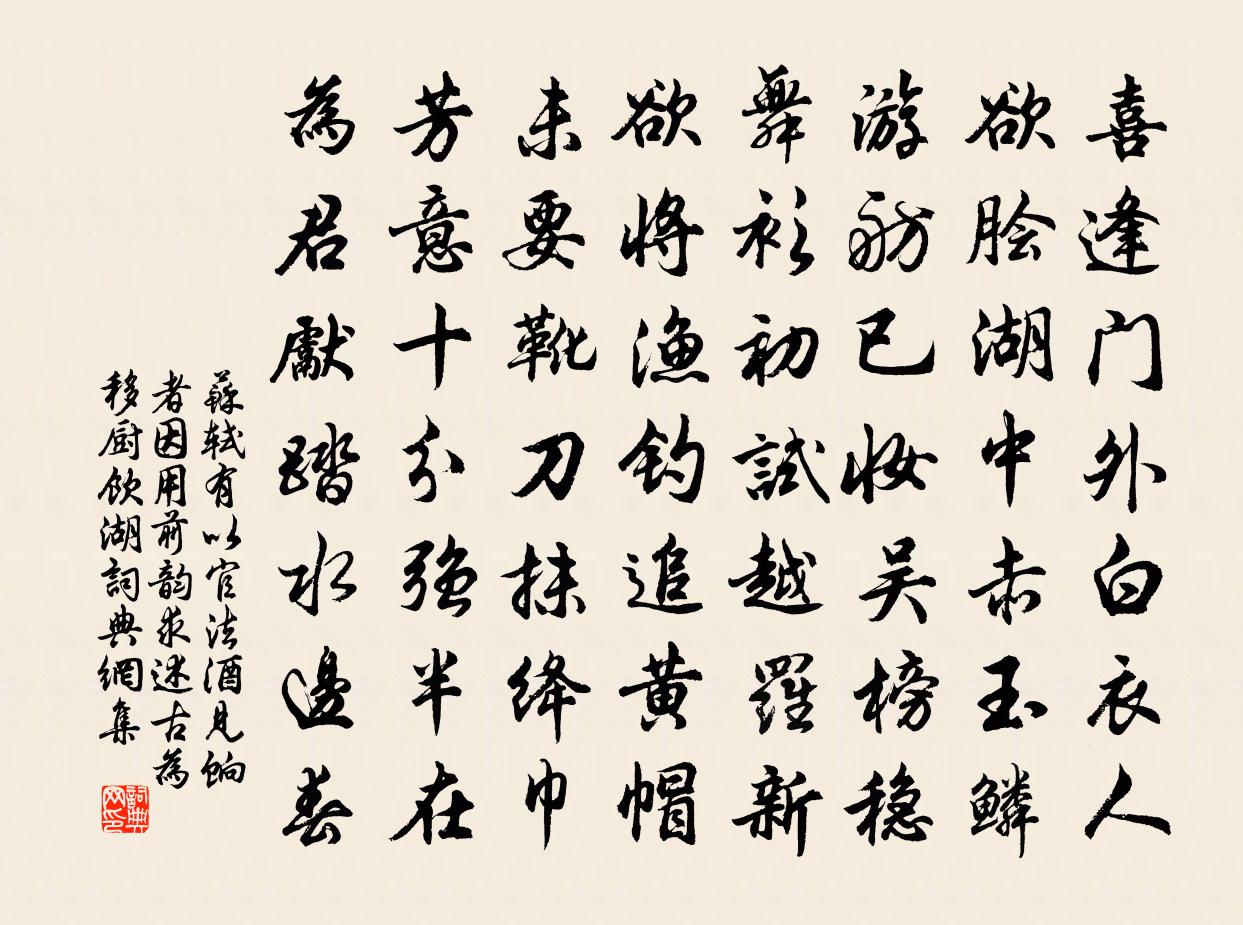 喜逢門外白衣人
欲脍湖中赤玉鳞
游舫已妆吴榜稳
舞衫初試越羅新
欲將漁钓追黄帽
未要靴刀抹绛巾
芳意十分强半在
為君獻踏水邊春
蘇轼有以官法酒見餉
者因用前韵求述古為
移厨饮湖詞典網集
詞典网印